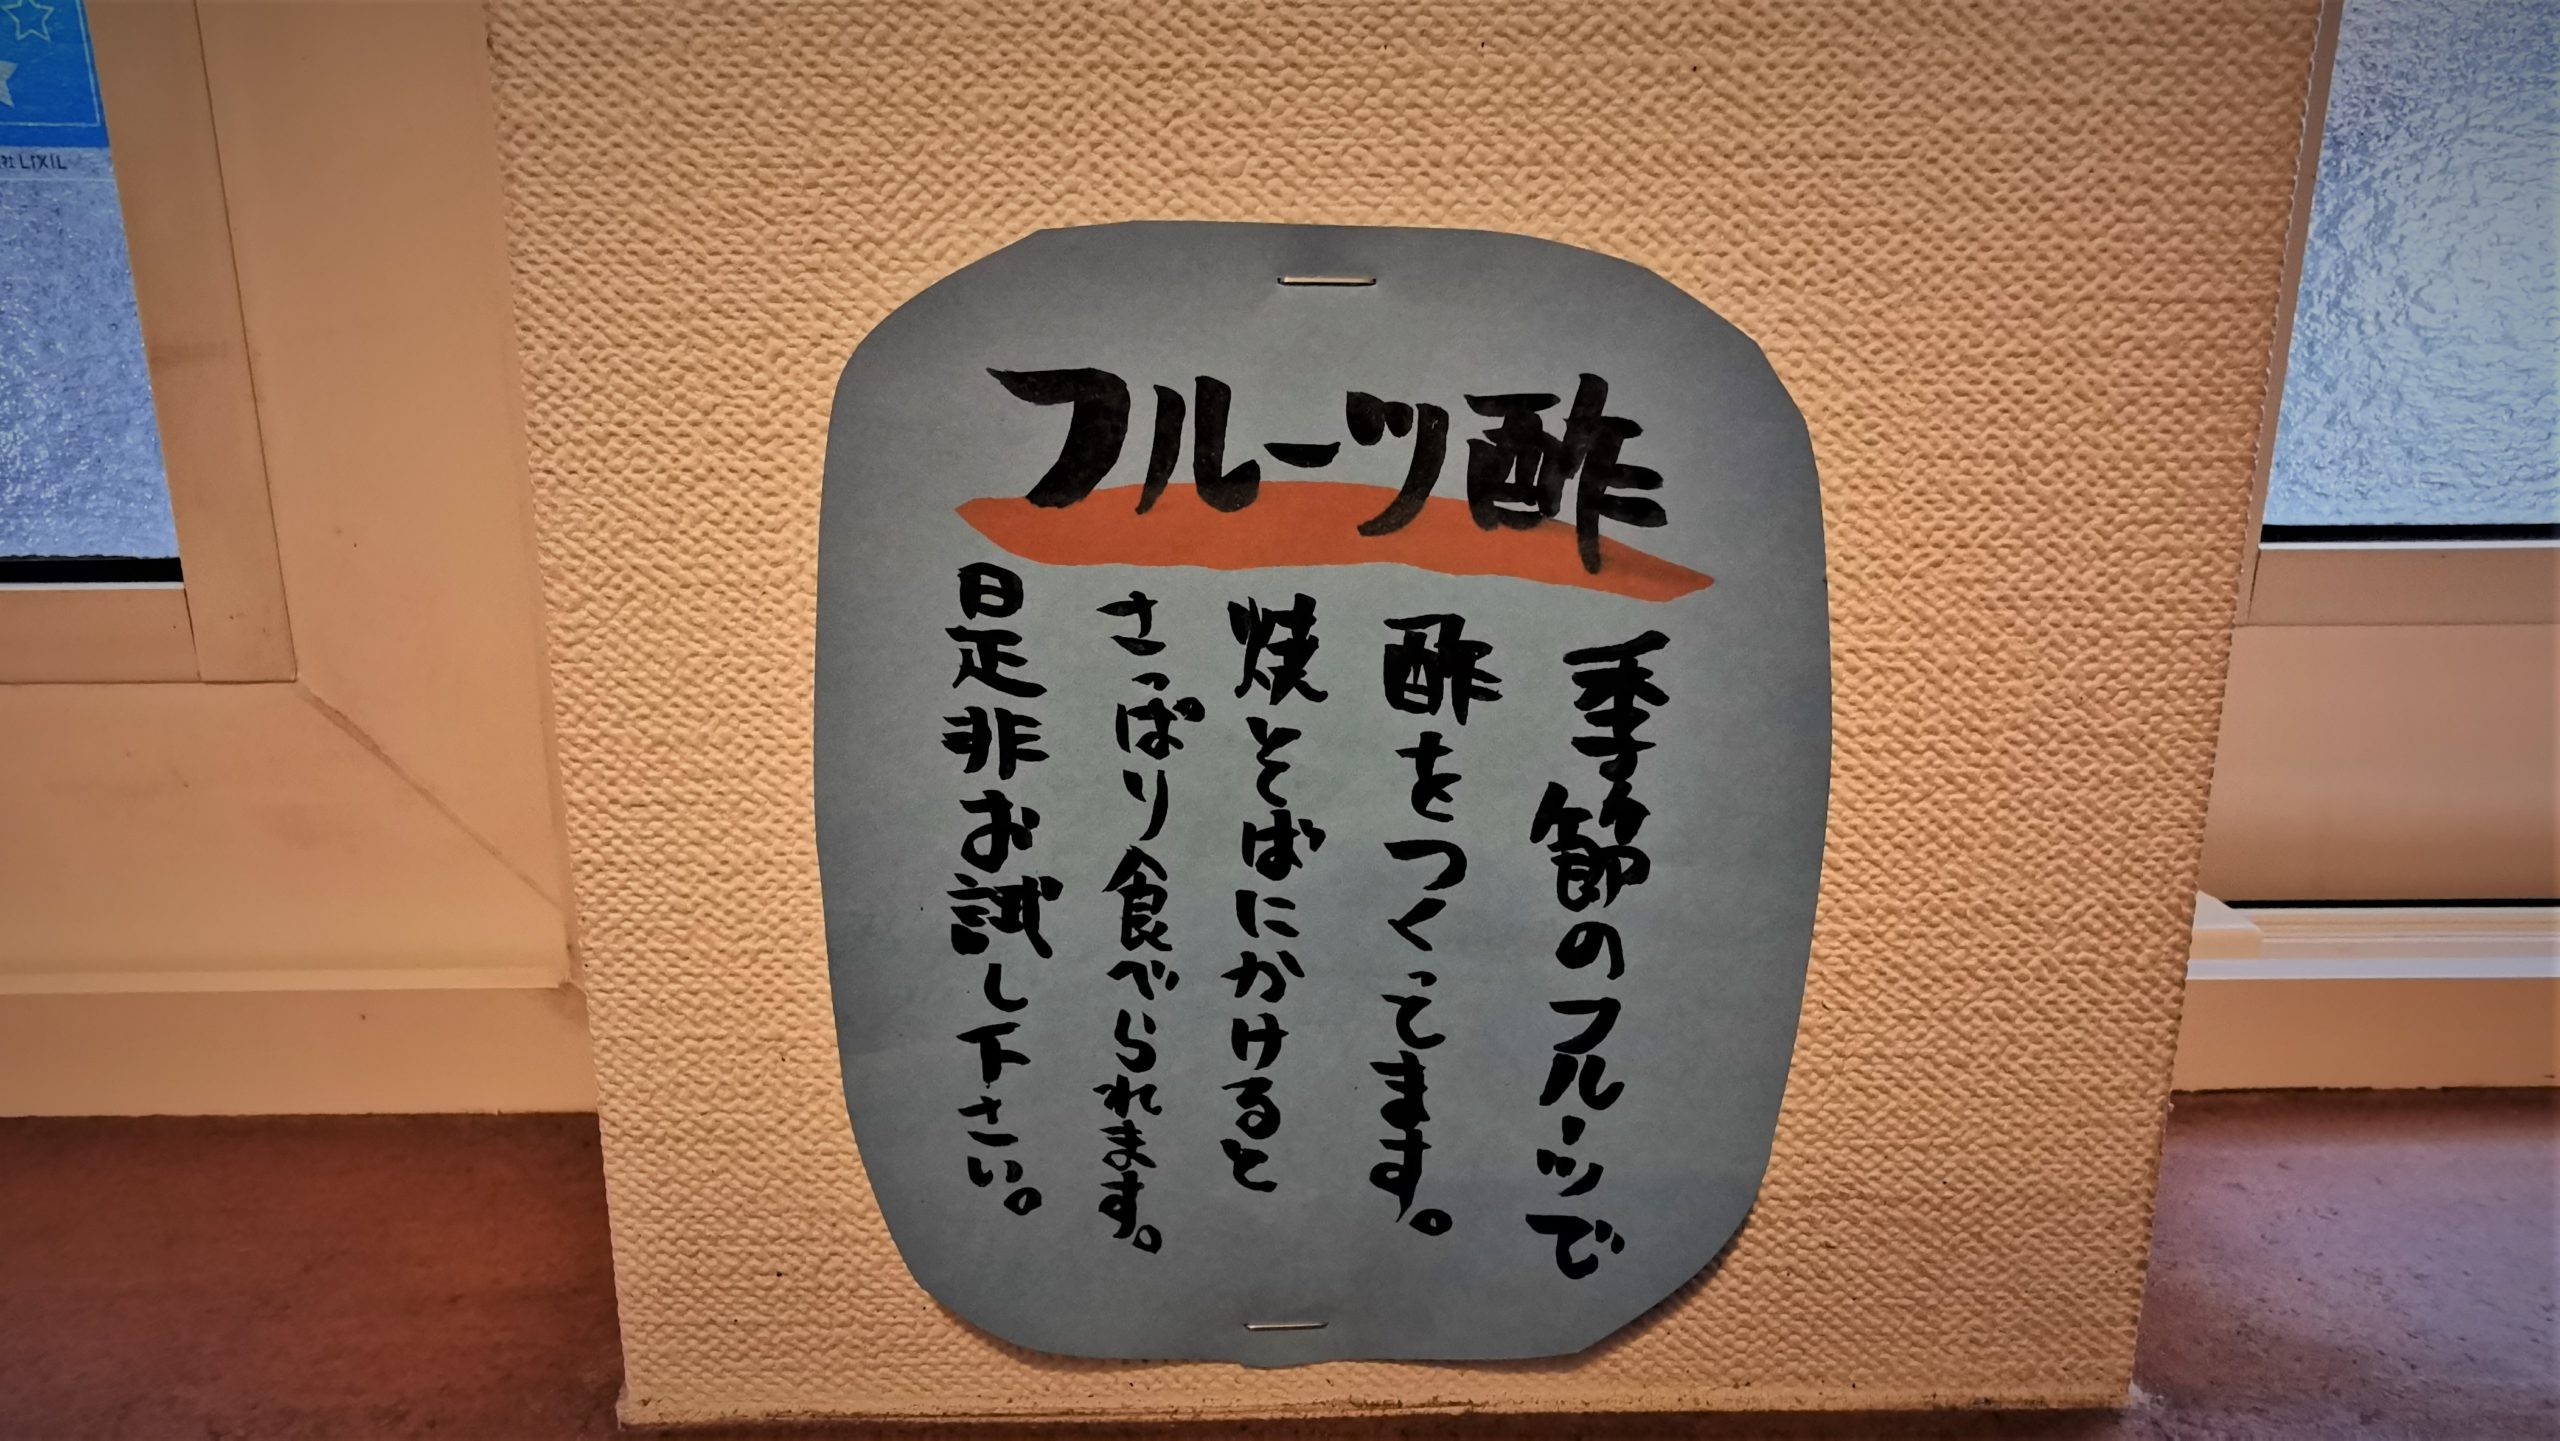 フルーツ酢
季節のフルーツで
酢をつくってます。
焼そばにかけると
さっぱり食べられます。
是非お試し下さい。
社 LIXIL